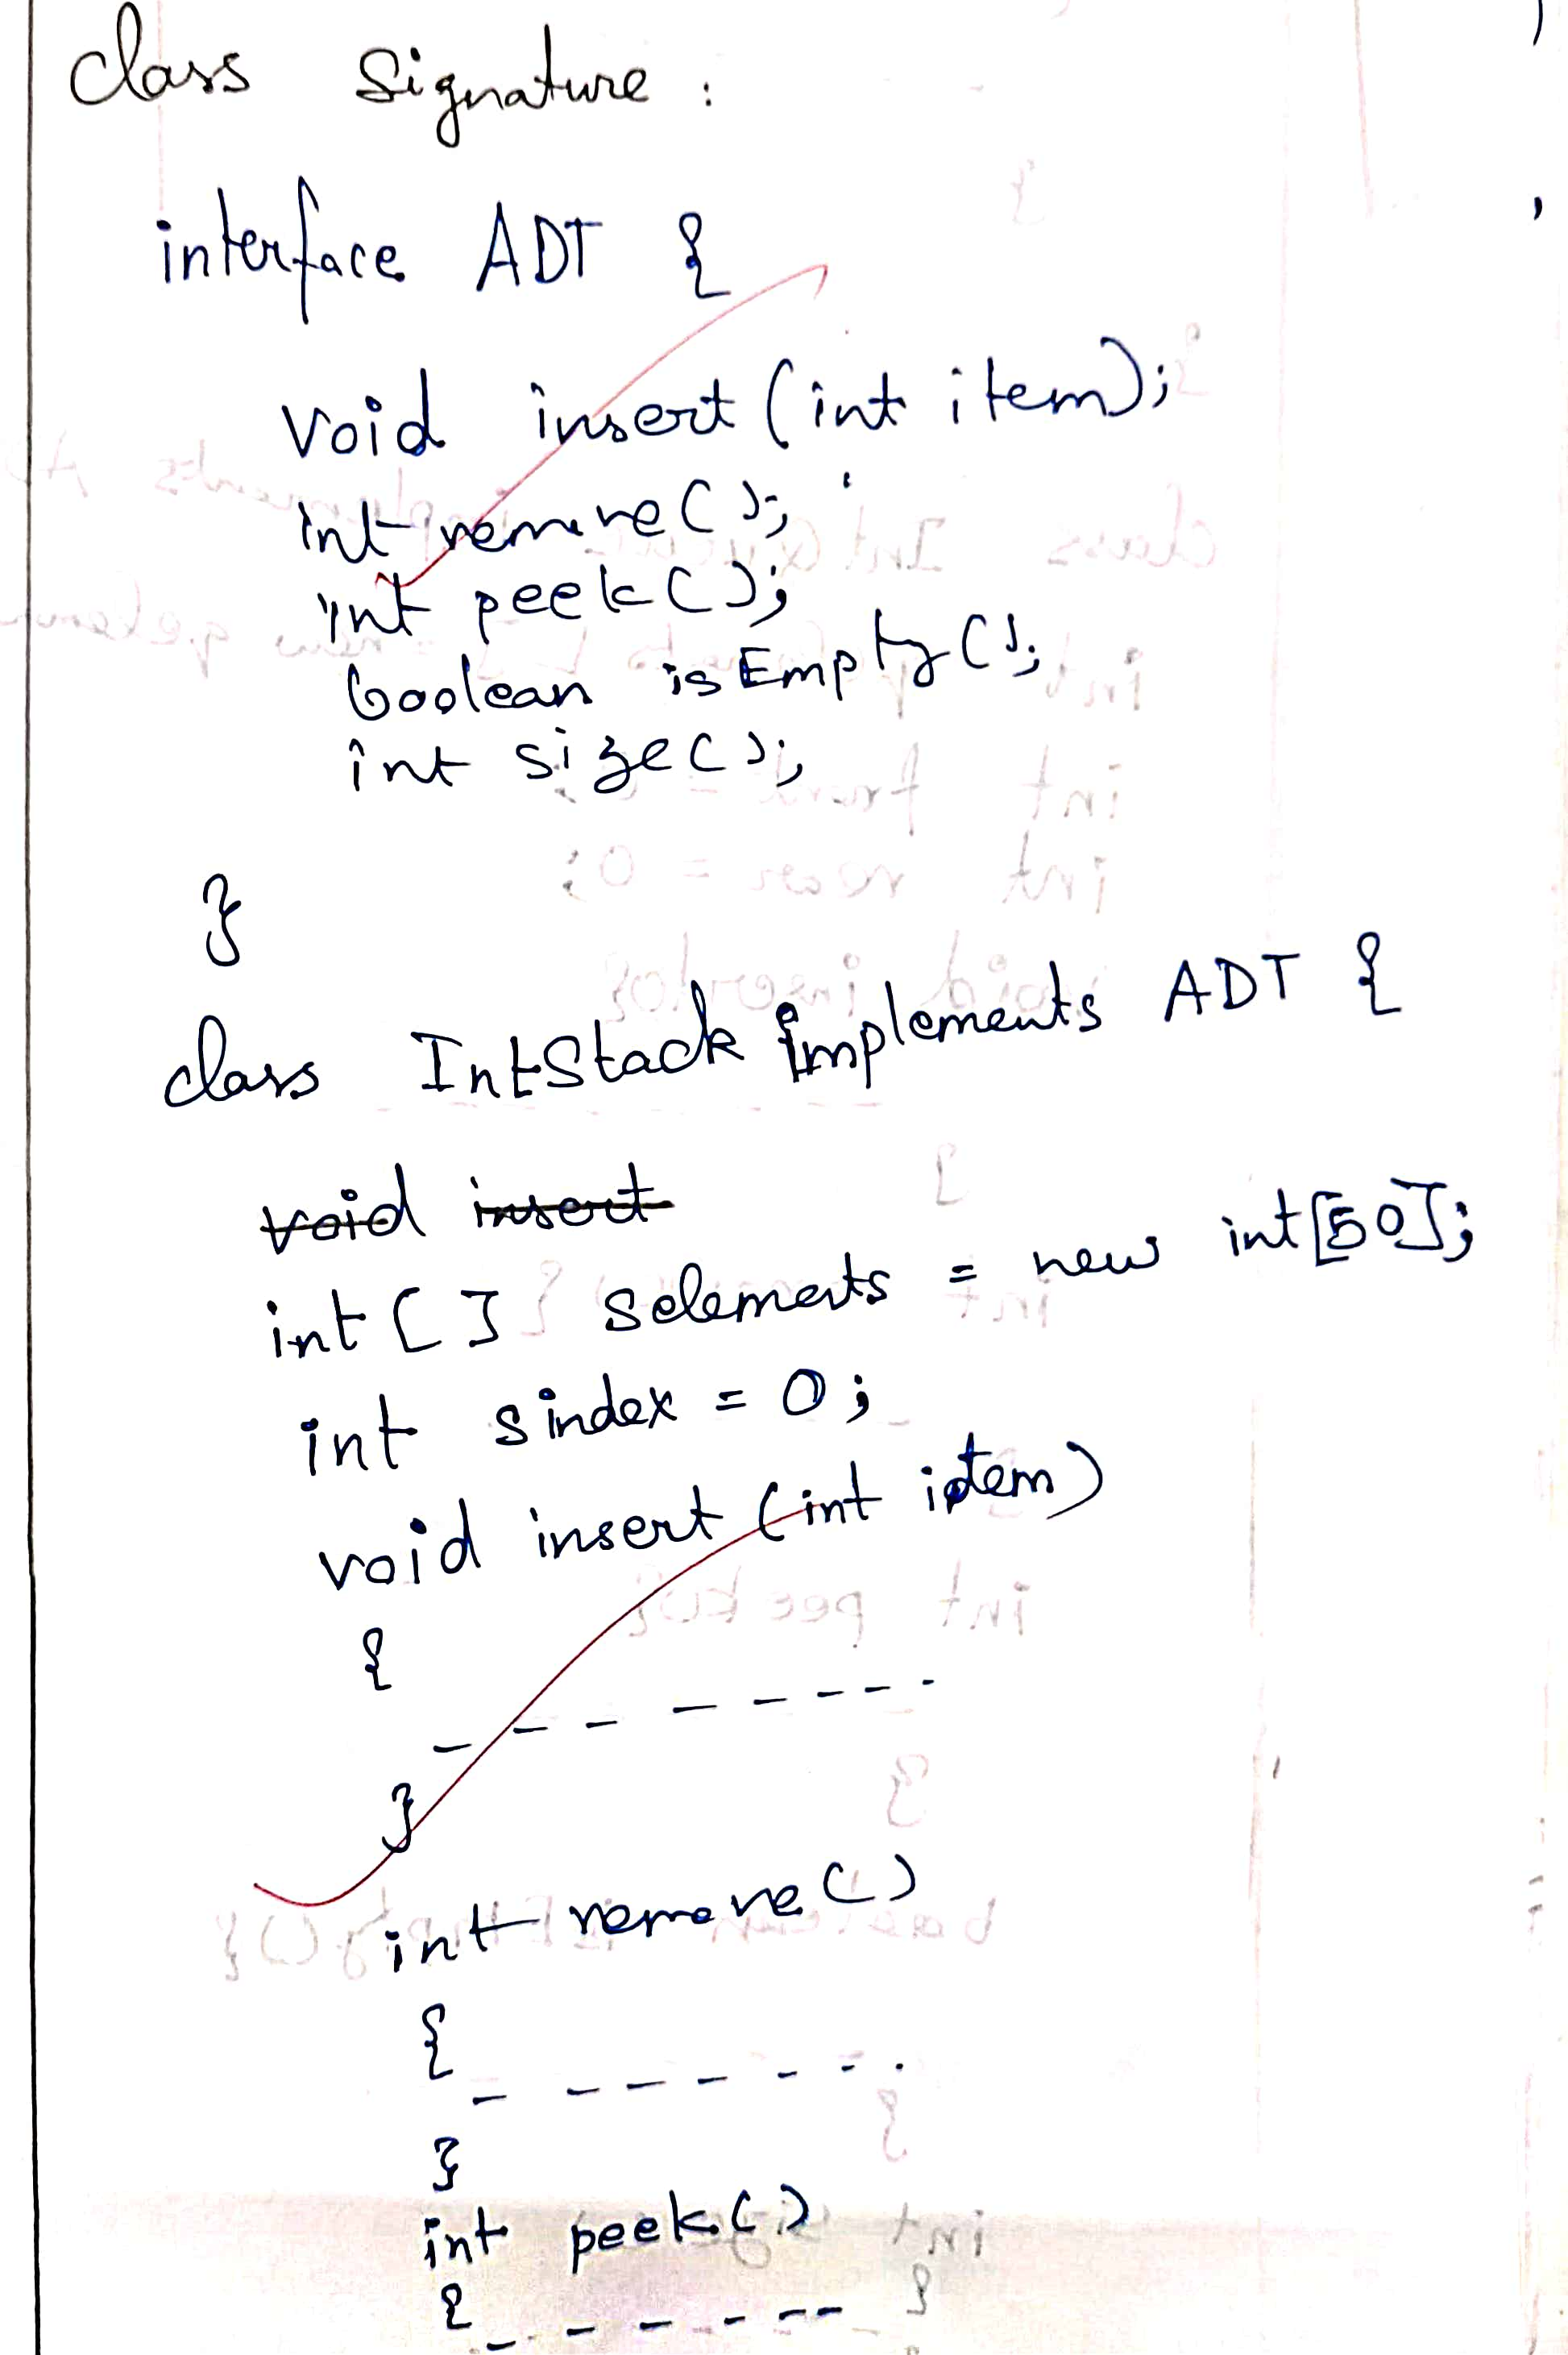 class Signature :
interface ADT {
void insert (int item);
int remove ( );
int peek ( );
boolean isEmpty ( );
int size ( );
}
class IntStack implements ADT {
void insert
int [ ] selements = new int[50];
int sindex = 0 ;
void insert (int item)
{
_ _ _ _ _ _ _ _
}
int remove ( )
{
_ _ _ _ _ _ _
}
int peek ( )
{ _ _ _ _ _ _